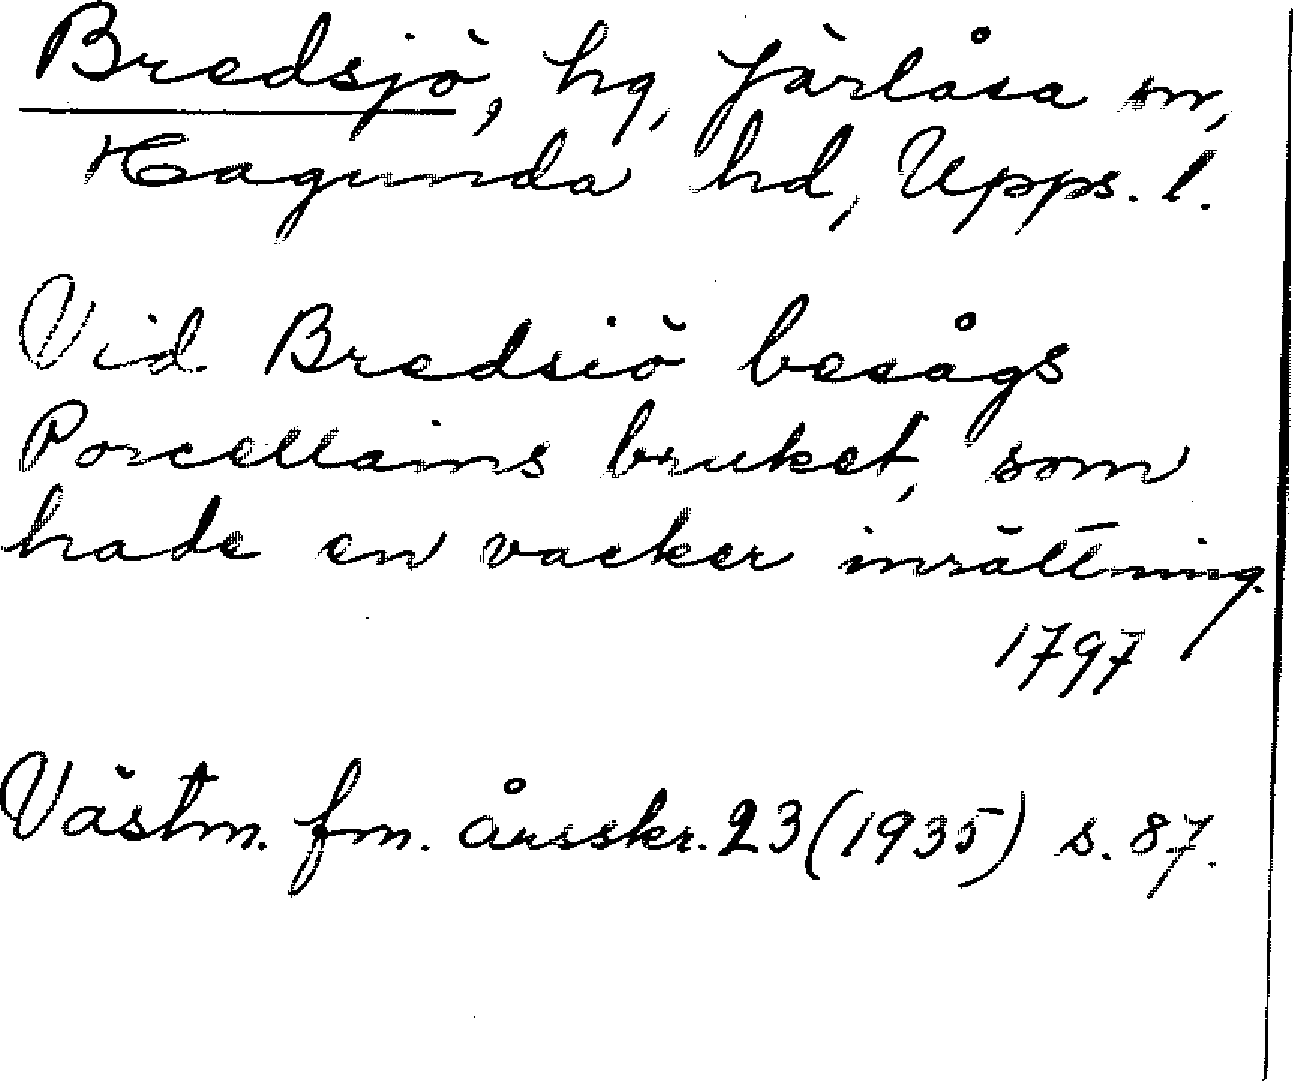 Bredsjö, hg, Järlåsa sn,
Hagunda hd, Upps. l.
Vid Bredsiö besågs
Porcellains bruket, som
hade en vacker inrättning.
1797
Västm. fm. årsskr. 23 (1935) s. 87.